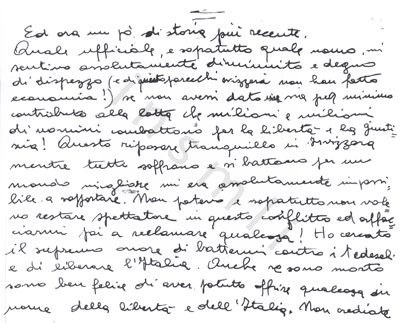 Ed ora un pò di storia più recente.
Quale ufficiale, e sopratutto quale uomo, mi
sentivo assolutamente diminuito e degno
di disprezzo (e di questo parecchi svizzeri non han fatto
economia!) se non avessi dato un sia pur minimo
contributo alla lotta che milioni e milioni
di uomini combattono per la libertà e la giusti
zia! Questo riposare tranquillo in Svizzera
mentre tutti soffrano e si battono per un
mondo migliore mi era assolutamente impossi
bile a sopportare. Non potevo e sopratutto non vole
vo restare spettatore in questo conflitto ed affac
ciarmi poi a reclamare qualcosa! Ho cercato
il supremo onore di battermi contro i tedeschi
e di liberare l'Italia. Anche se sono morto
sono ben felice di aver potuto offrire qualcosa in
nome della libertà e dell'Italia. Non crediate